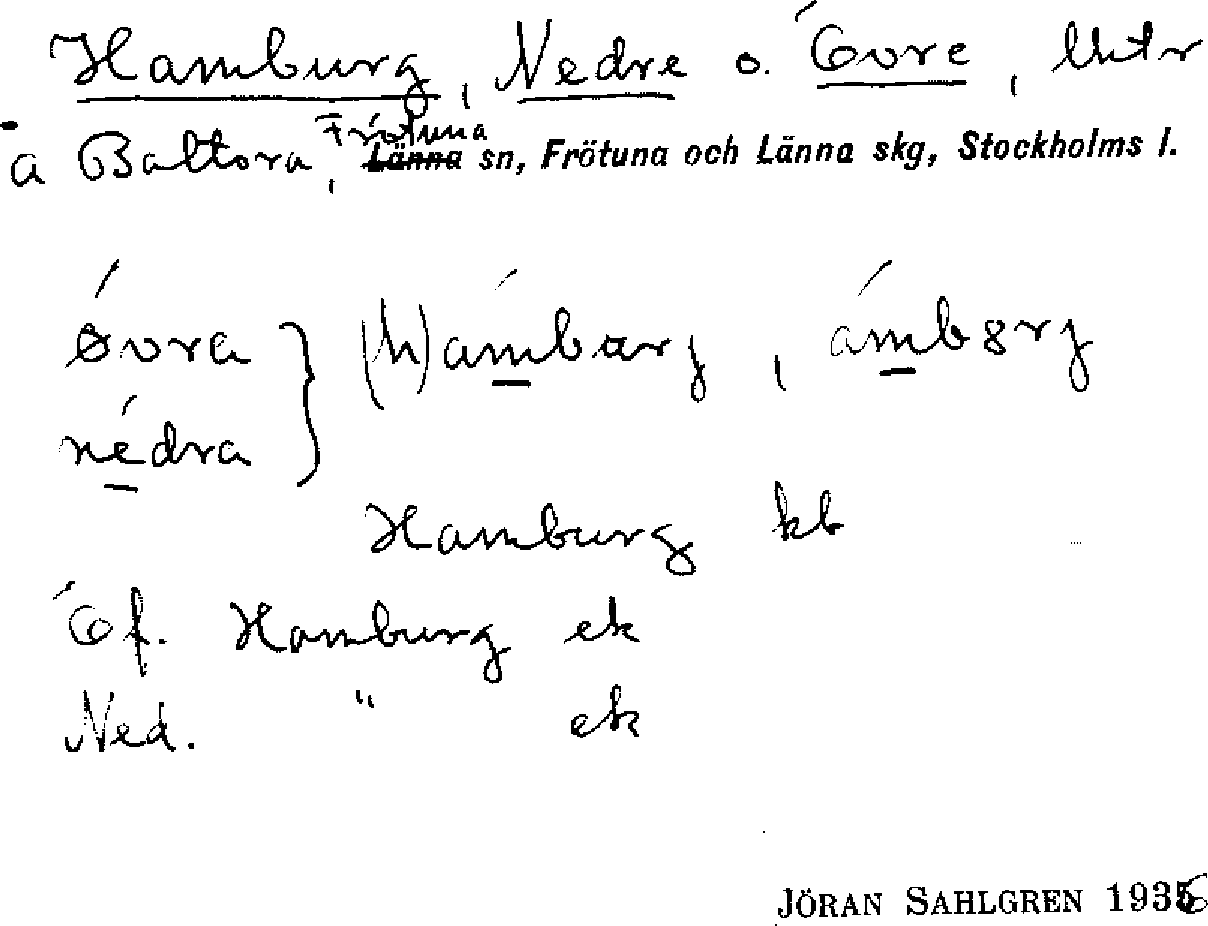 Hamburg, Nedre o. Övre, lhtr
å Baltora, Frötuna Länna sn, Frötuna och Länna skg, Stockholms l.
ǿvra } (h)ámbarj, ámbərj
nédra
Hamburg kb
Öf. Hamburg ek
Ned. " ek
JÖRAN SAHLGREN 1936